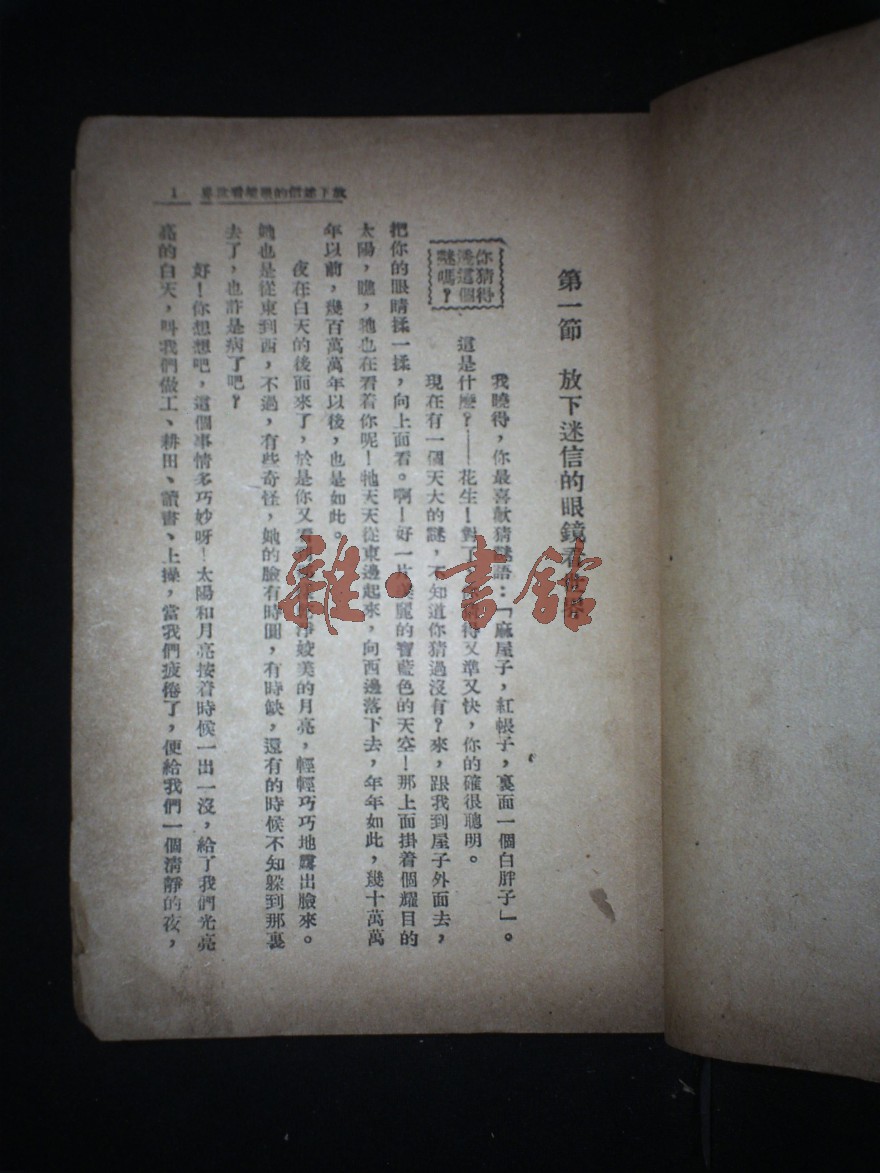 放下迷信的眼鏡看世界 1
第一節 放下迷信的眼鏡看世界
你猜得
透這個
謎嗎？
我曉得，你最喜歡猜謎語：「麻屋子，紅帳子，裏面一個白胖子」。
這是什麼？——花生！對了，得又準又快，你的確很聰明。
現在有一個天大的謎，不知道你猜過沒有？來，跟我到屋子外面去，
把你的眼睛揉一揉，向上面看。啊！好一片美麗的寶藍色的天空！那上面掛着個耀目的
太陽，瞧，牠也在看着你呢！牠天天從東邊起來，向西邊落下去，年年如此，幾十萬萬
年以前，幾百萬萬年以後，也是如此。
夜在白天的後面來了，於是你又看淨姣美的月亮，輕輕巧巧地露出臉來。
她也是從東到西，不過，有些奇怪，她的臉有時圓，有時缺，還有的時候不知躲到那裏
去了，也許是病了吧？
好！你想想吧，這個事情多巧妙呀！太陽和月亮按着時候一出一沒，給了我們光亮
亮的白天，叫我們做工、耕田、讀書、上操，當我們疲倦了，便給我們一個清靜的夜，
雜·書館